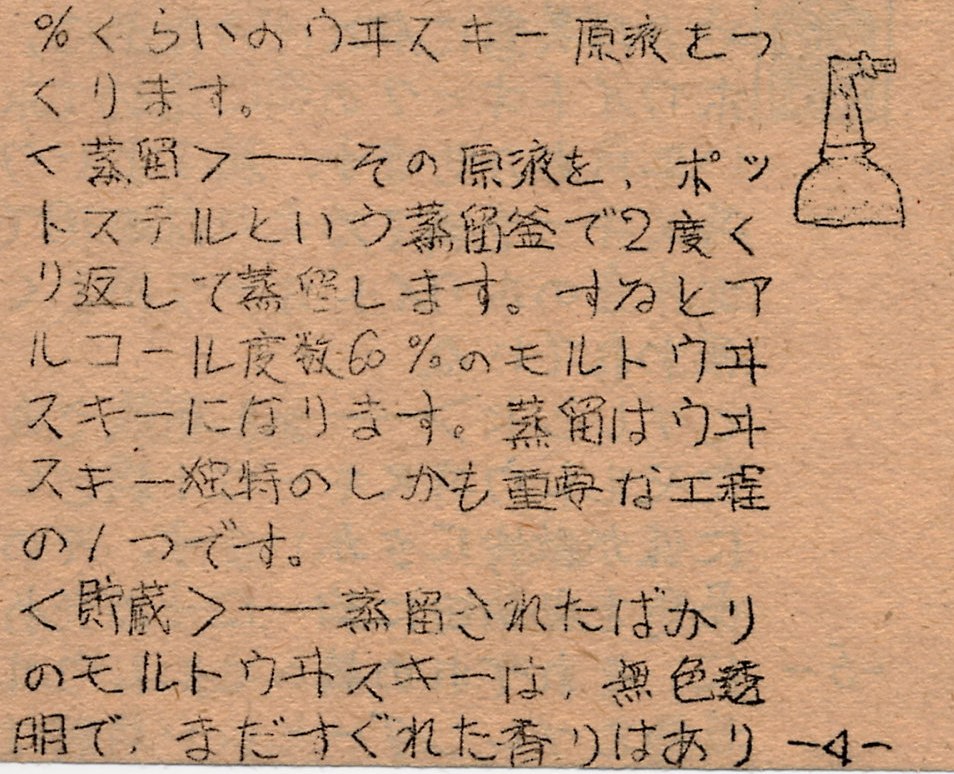 %くらいのウヰスキー原液をつ
くります。
<蒸留>──その原液を、ポッ
トステルという蒸留釜で2度く
り返して蒸留します。するとア
ルコール度数60%のモルトウヰ
スキーになります。蒸留はウヰ
スキー独特のしかも重要な工程
の1つです。
<貯蔵>──蒸留されたばかり
のモルトウヰスキーは、無色透
明で、まだすぐれた香りはあり
-4-